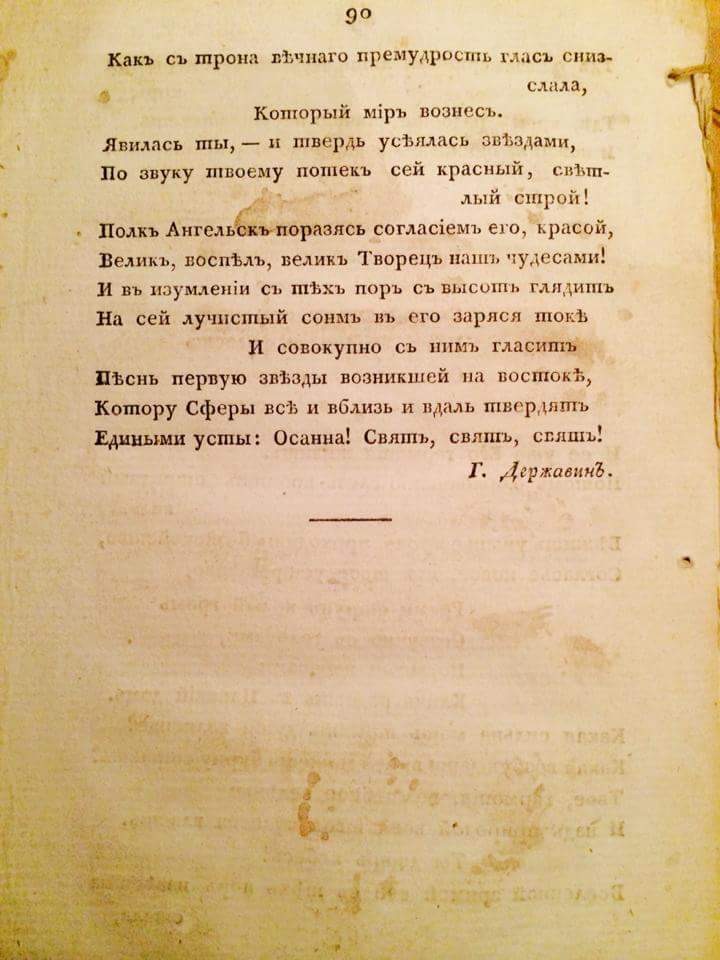 90
Какъ съ трона вѣчнаго премудрость гласъ сниз-
слала,
Который міръ вознесъ.
Явилась ты, — и твердь усѣялась звѣздами,
По звуку твоему потекъ сей красный, свѣт-
лый строй!
Полкъ Ангельскъ поразясь согласіемъ его, красой,
Великъ, воспѣлъ, великъ Творецъ нашъ чудесами!
И въ изумленіи съ тѣхъ поръ съ высотъ глядитъ
На сей лучистый сонмъ въ его заряся токѣ
И совокупно съ нимъ гласитъ
Пѣснь первую звѣзды возникшей на востокѣ,
Котору Сферы всѣ и вблизь и вдаль твердятъ
Едиными усты: Осанна! Святъ, святъ, святъ!
Г. Державинъ.